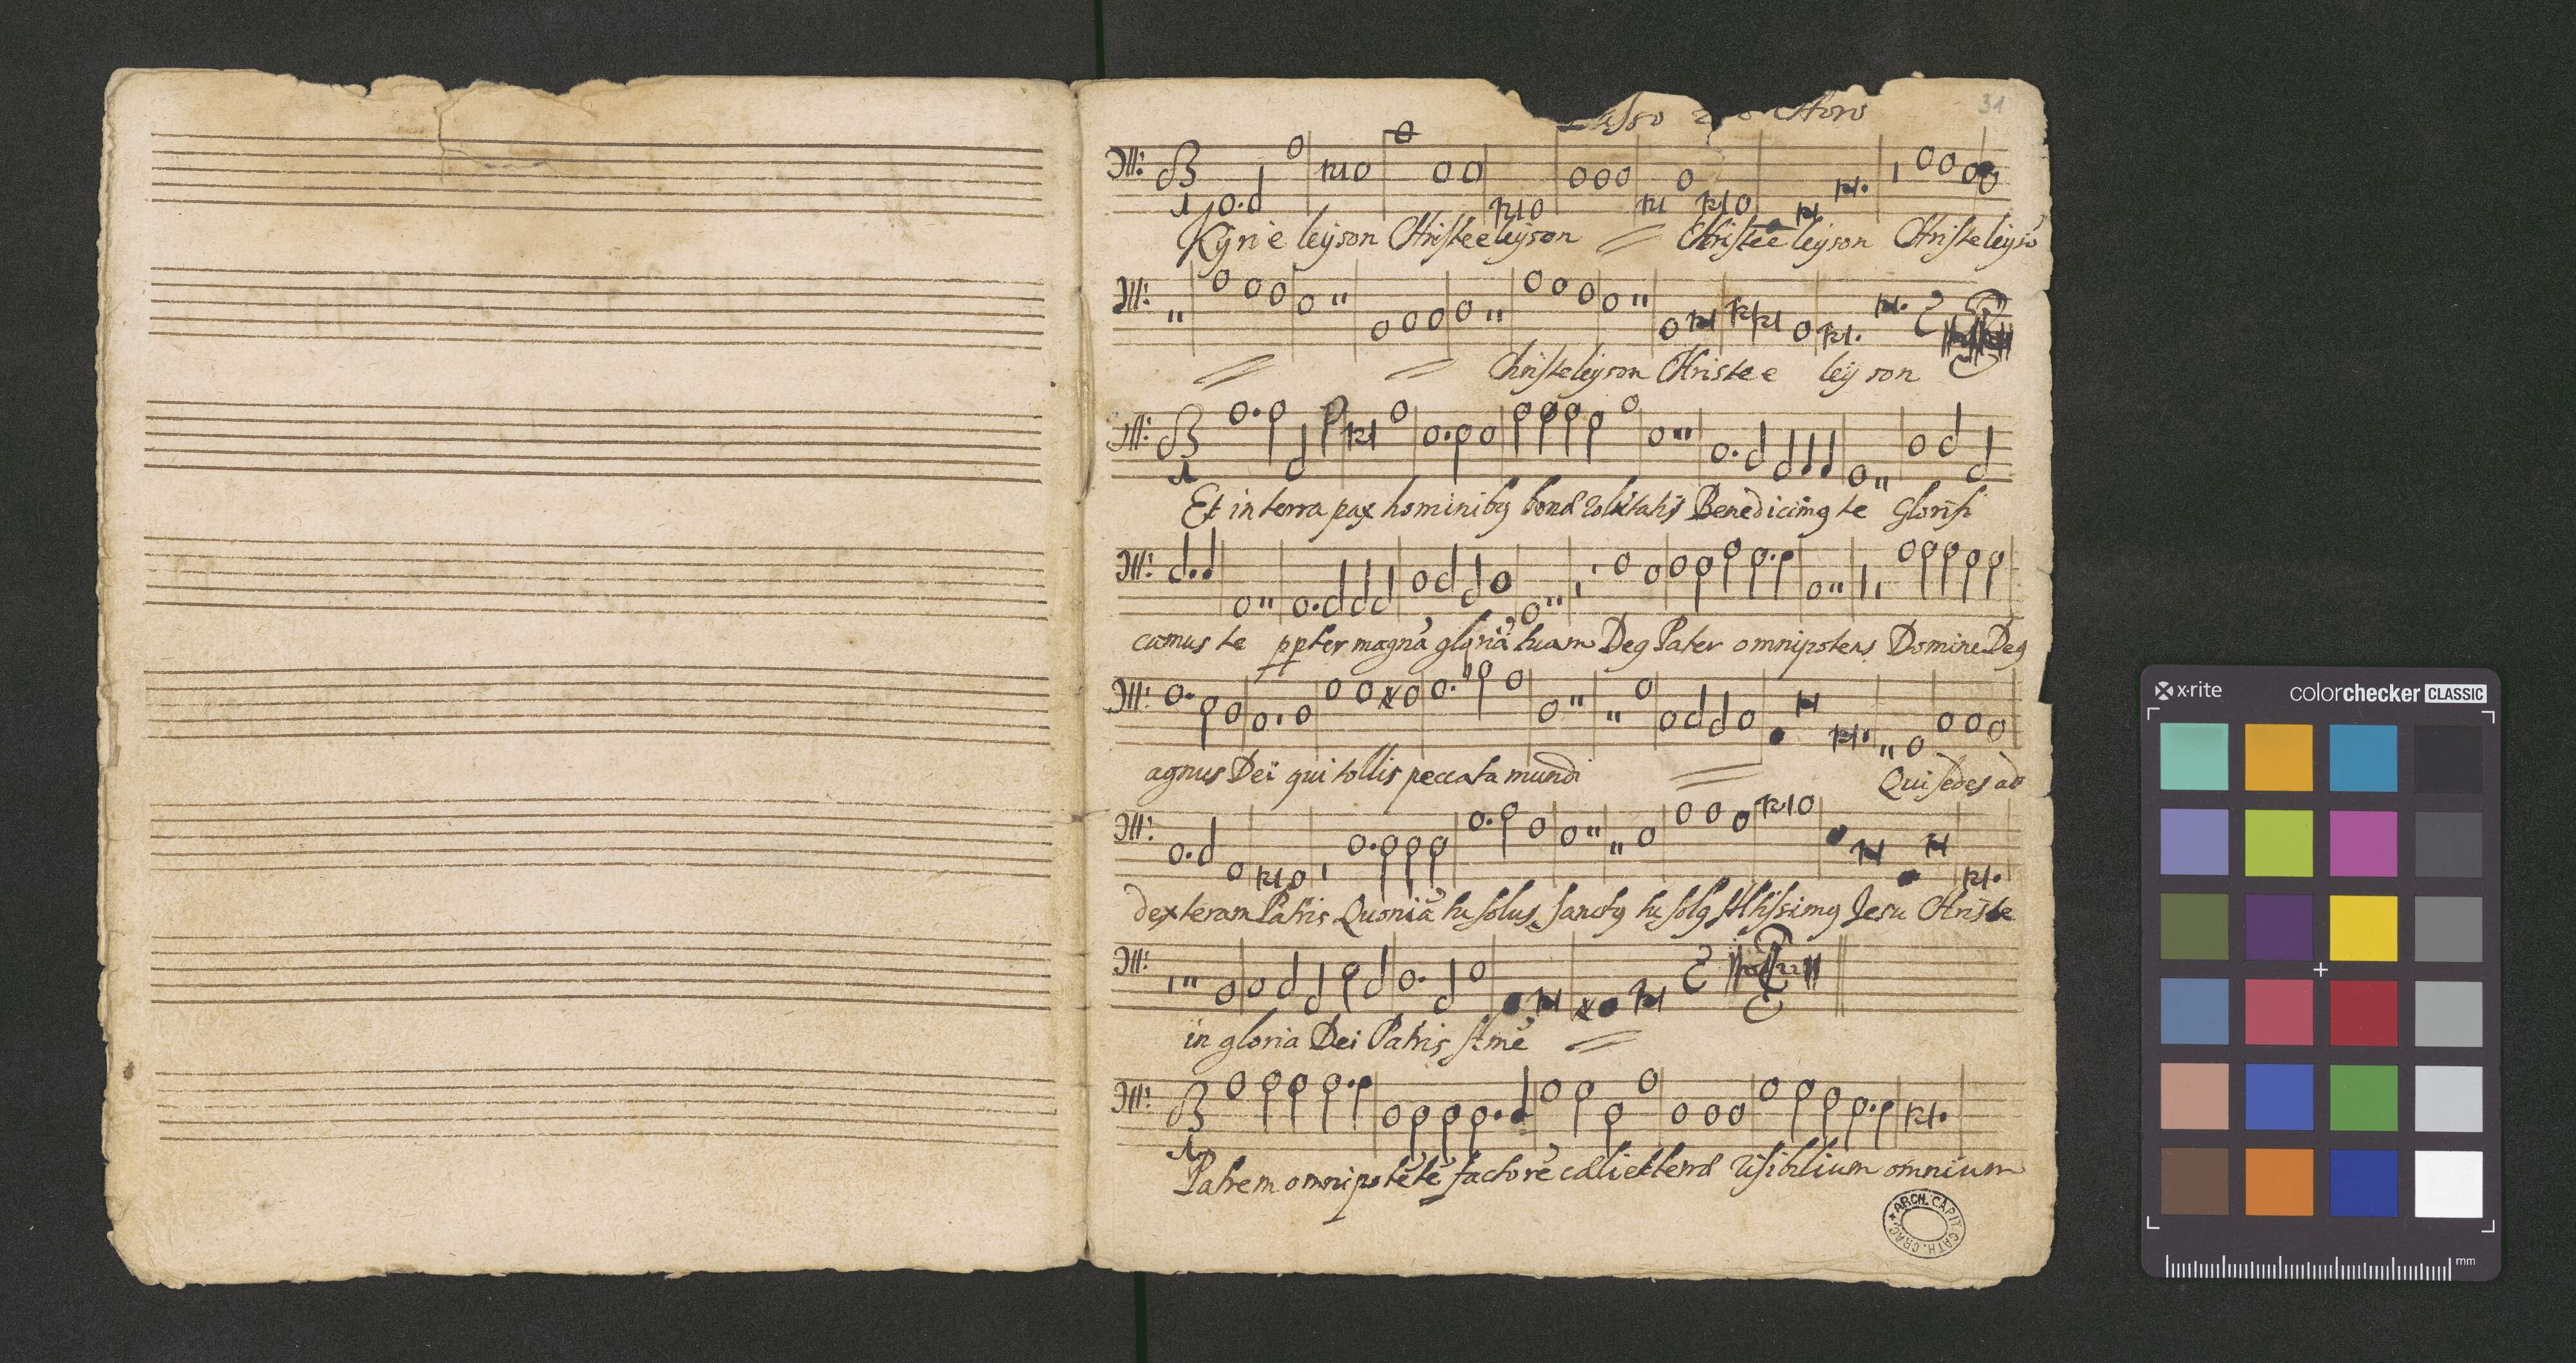 31
Choro
Kyrie leyson Christe eleyson Christe e leyson Christe leyso
Christe leyson Christe e ley son
Et in terra pax hominibg bonæ volutatis Benedicimg te Glorifi
camus te ppter magnā gloriā tuam Deg Pater omnipotens Domine Deg
agnus Dei qui tollis peccata mundi Qui sedes ad
dexteram Patris Quoniā tu solus sanctg tu solg Altissimg Jesu Christe
in gloria Dei Patris Amē
Patrem omnipotētē factorē cæli et terræ visibilium omnium
ARCH. CAPIT. CATH. CRAC.
x·rite colorchecker CLASSIC
mm